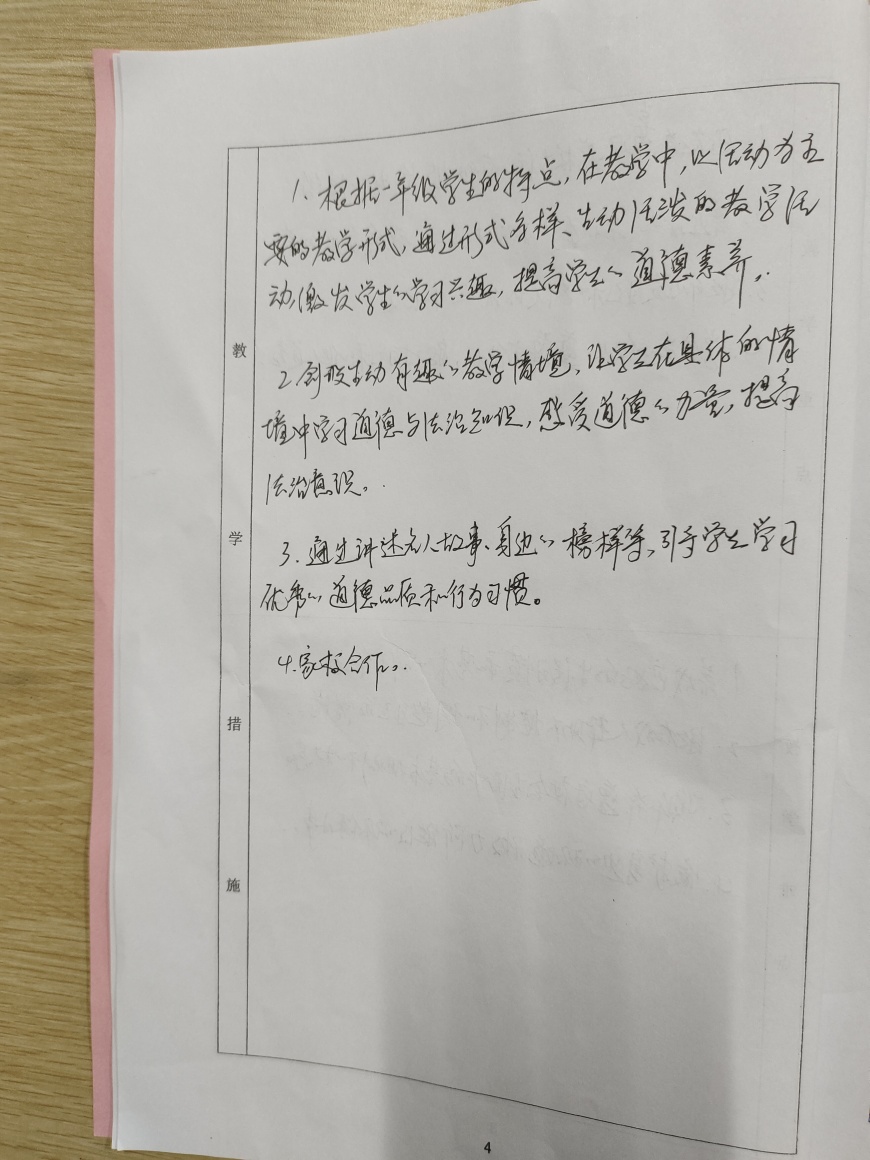 教学措施
1. 根据一年级学生的特点，在教学中，以活动为主
要的教学形式，通过形式多样、生动活泼的教学活
动，激发学生的学习兴趣，提高学生的道德素养。
2. 创设生动有趣的教学情境，让学生在具体的情
境中学习道德与法治知识，感受道德的力量，提高
法治意识。
3. 通过讲述名人故事、身边的榜样等，引导学生学习
优秀的道德品质和行为习惯。
4. 家校合作。
4